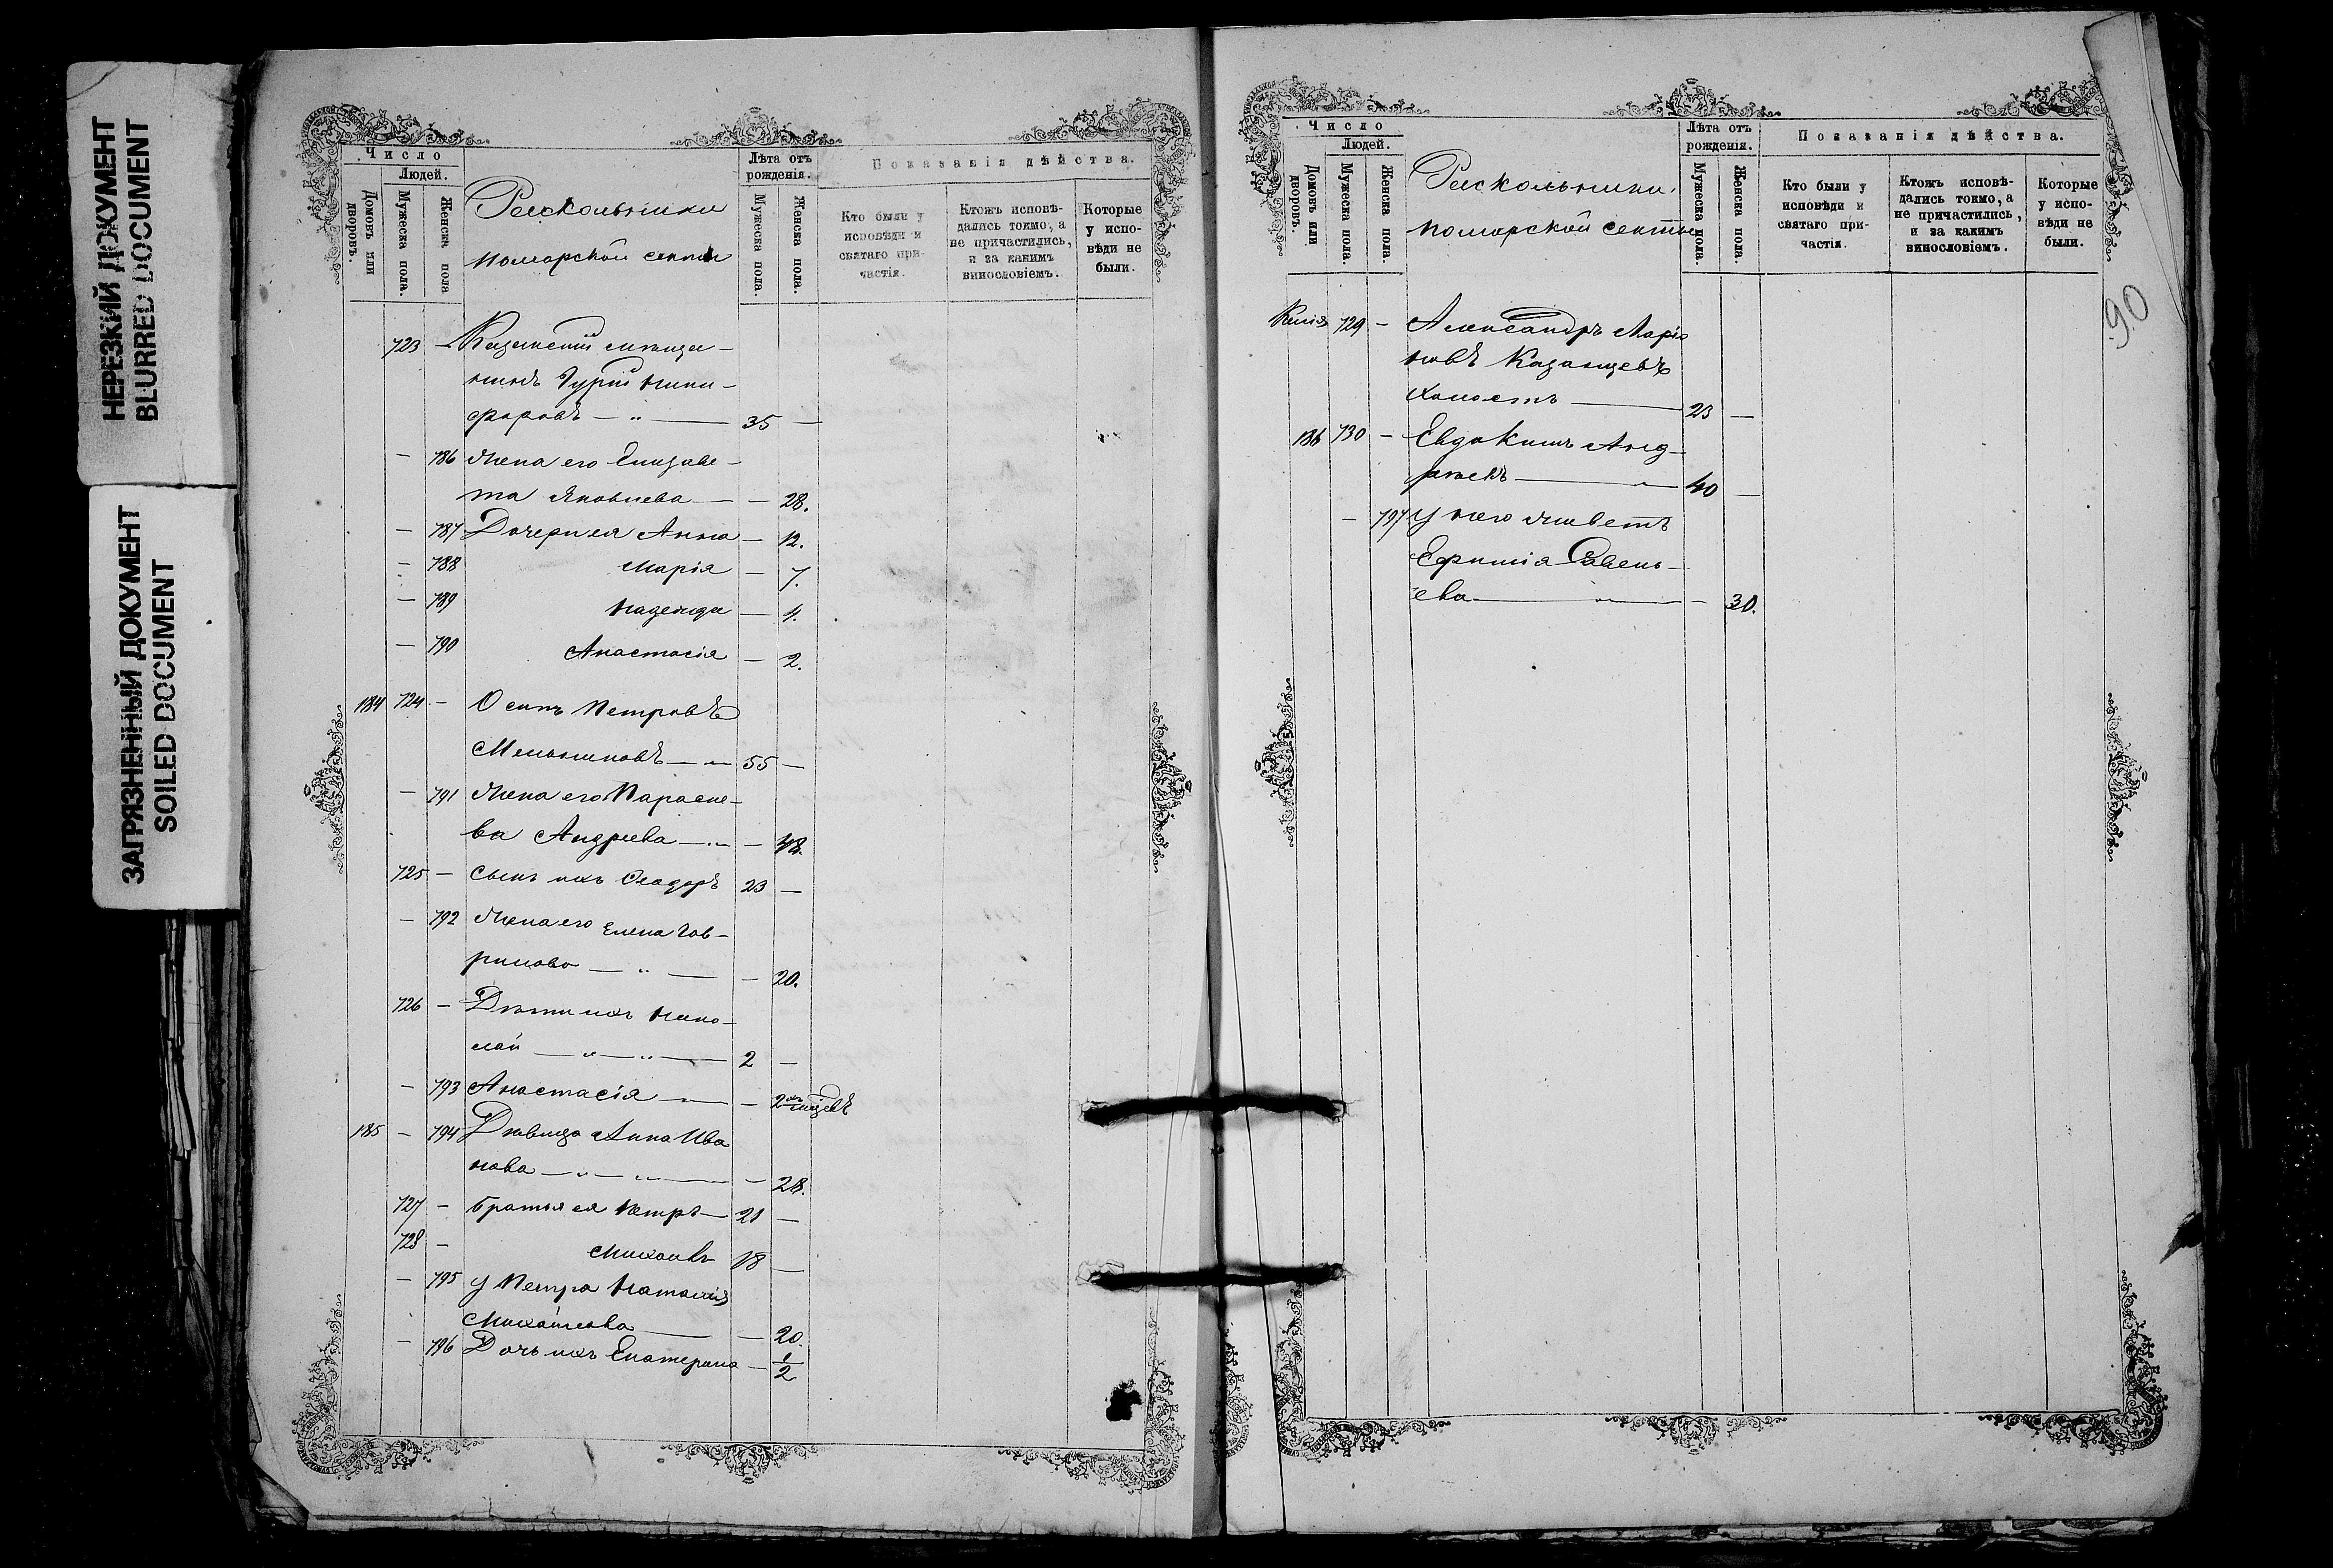 НЕРЕЗКИЙ ДОКУМЕНТ
BLURRED DOCUMENT
ЗАГРЯЗНЕННЫЙ ДОКУМЕНТ
SOILED DOCUMENT
Число
Людей.
Домовъ или дворовъ.
Мужеска пола.
Женска пола
Раскольники
поморской секты
Лѣта отъ рожденія.
Мужеска пола.
Женска пола.
Показанія дѣйства.
Кто были у исповѣди и святаго причастія.
Ктожъ исповѣдались токмо, а не причастились, и за какимъ винословіемъ.
Которые у исповѣди не были.
723 – Казанскій мѣща-
нинъ Гурій Ники-
форовъ — " — 35 —
– 786 Жена его Елизаве-
та Яковлева — – 28.
– 787 Дочери ея Анна – 12.
– 788 Марія – 7.
– 789 Надежда – 4.
– 790 Анастасія – 2.
184 724 – Осипъ Петровъ
Мельниковъ — " — 55 —
– 791 Жена его Параске-
ва Андреева — " — – 48.
725 – Сынъ ихъ Ѳеодоръ 23 —
– 792 Жена его Елена Гав-
рилова — " — – 20.
726 – Дѣти ихъ Нико-
лай — " — " — 2 —
– 793 Анастасія — " — – 2хъ мѣсяц
185 – 794 Дѣвица Анна Ива
нова — " — " — – 28.
727 – Братья ея Петръ — 21 —
728 – Михаилъ 18 —
– 795 У Петра Наталія
Михайлова — – 20.
– 796 Дочь ихъ Екатерина – 1/2
Число
Людей.
Домовъ или дворовъ.
Мужеска пола.
Женска пола.
Раскольники
поморской секты
Лѣта отъ рожденія.
Мужеска пола.
Женска пола.
Показанія дѣйства.
Кто были у исповѣди и святаго причастія.
Ктожъ исповѣдались токмо, а не причастились, и за какимъ винословіемъ.
Которые у исповѣди не были.
90
Келія 729 – Александръ Ларіо
новъ Казанцевъ
холостъ — 23 —
186 730 – Евдокимъ Анд-
реевъ — " — 40 —
– 797 У него живетъ
Ефимія Савель-
ева — " — – 30.